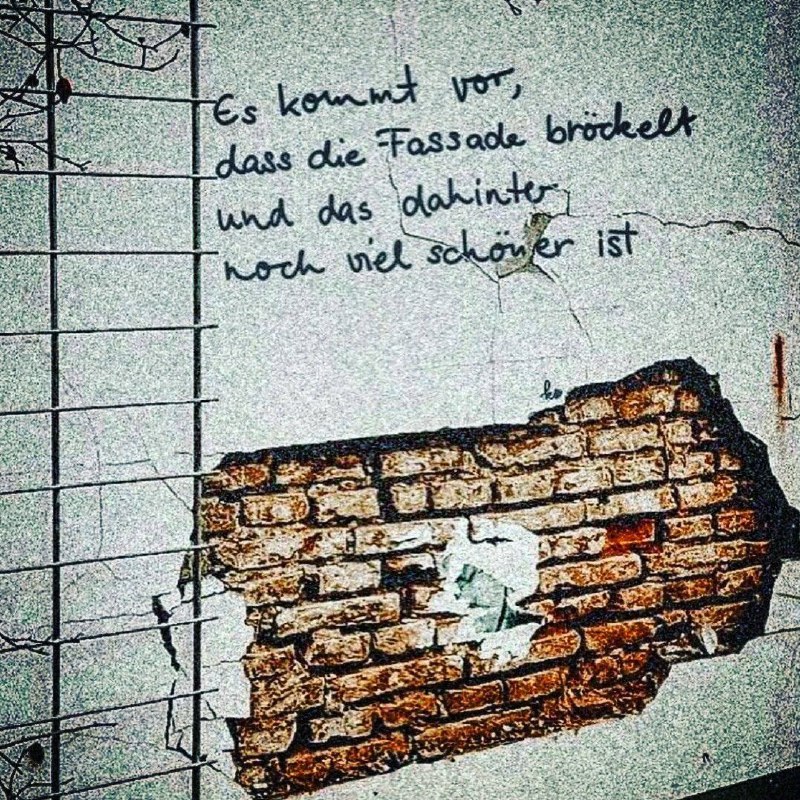 Es kommt vor,
dass die Fassade bröckelt
und das dahinter
noch viel schöner ist